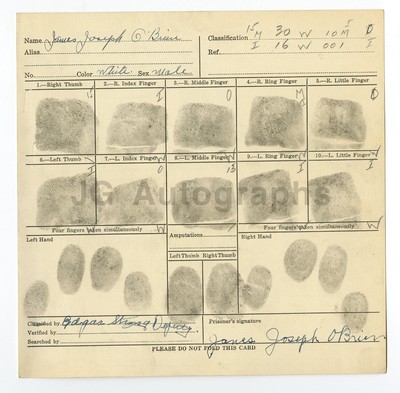 Name James Joseph O'Brien Classification 15 M 30 W 10M 5 D
Alias I 16 W 001 I
Ref.
No. Color White Sex Male
1.—Right Thumb 2.—R. Index Finger 3.—R. Middle Finger 4.—R. Ring Finger 5.—R. Little Finger
I O M D
6.—Left Thumb 7.—L. Index Finger 8.—L. Middle Finger 9.—L. Ring Finger 10.—L. Little Finger
I O 13 I I
JG Autographs
Four fingers taken simultaneously W Amputations Four fingers taken simultaneously W
Left Hand Right Hand
Left Thumb Right Thumb
Classified by Strong Deputy Prisoner's signature
Verified by
Searched by James Joseph O'Brien
PLEASE DO NOT FOLD THIS CARD